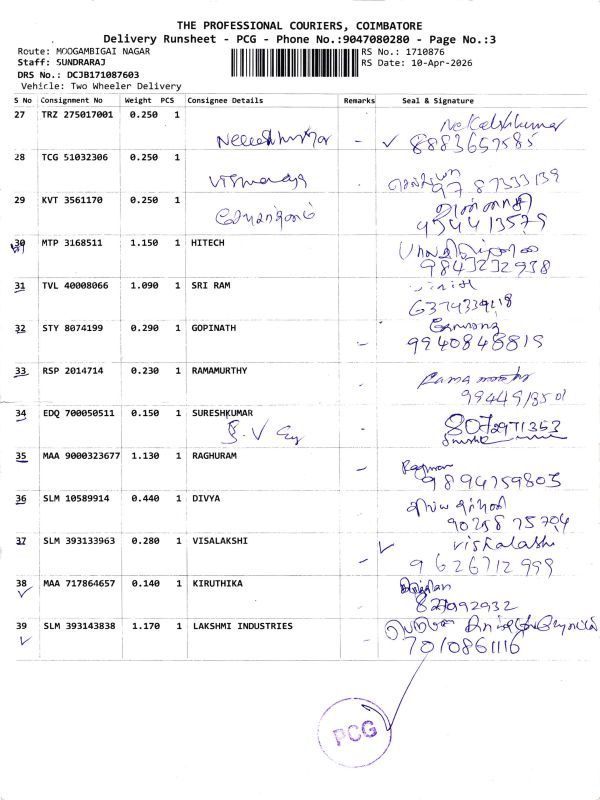 THE PROFESSIONAL COURIERS, COIMBATORE
Delivery Runsheet - PCG - Phone No.:9047080280 - Page No.:3
Route: MOOGAMBIGAI NAGAR RS No.: 1710876
Staff: SUNDRARAJ RS Date: 10-Apr-2026
DRS No.: DCJB171087603
Vehicle: Two Wheeler Delivery
S No Consignment No Weight PCS Consignee Details Remarks Seal & Signature
27 TRZ 275017001 0.250 1
8883657585
28 TCG 51032306 0.250 1
9787333139
29 KVT 3561170 0.250 1
30 MTP 3168511 1.150 1 HITECH
9843232938
31 TVL 40008066 1.090 1 SRI RAM
32 STY 8074199 0.290 1 GOPINATH
9940848819
33 RSP 2014714 0.230 1 RAMAMURTHY
34 EDQ 700050511 0.150 1 SURESHKUMAR
8072971363
35 MAA 9000323677 1.130 1 RAGHURAM
9894759803
36 SLM 10589914 0.440 1 DIVYA
37 SLM 393133963 0.280 1 VISALAKSHI
Viskalashi
9626712999
38 MAA 717864657 0.140 1 KIRUTHIKA
39 SLM 393143838 1.170 1 LAKSHMI INDUSTRIES
7010861116
PCG